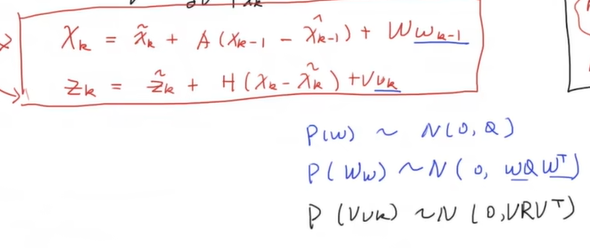 X_k = x̃_k + A(x_{k-1} - x̂_{k-1}) + W w_{k-1}
z_k = z̃_k + H(x_k - x̃_k) + V v_k
P(w) ~ N(0, Q)
P(Ww) ~ N(0, WQW^T)
P(Vv_k) ~ N(0, VRV^T)